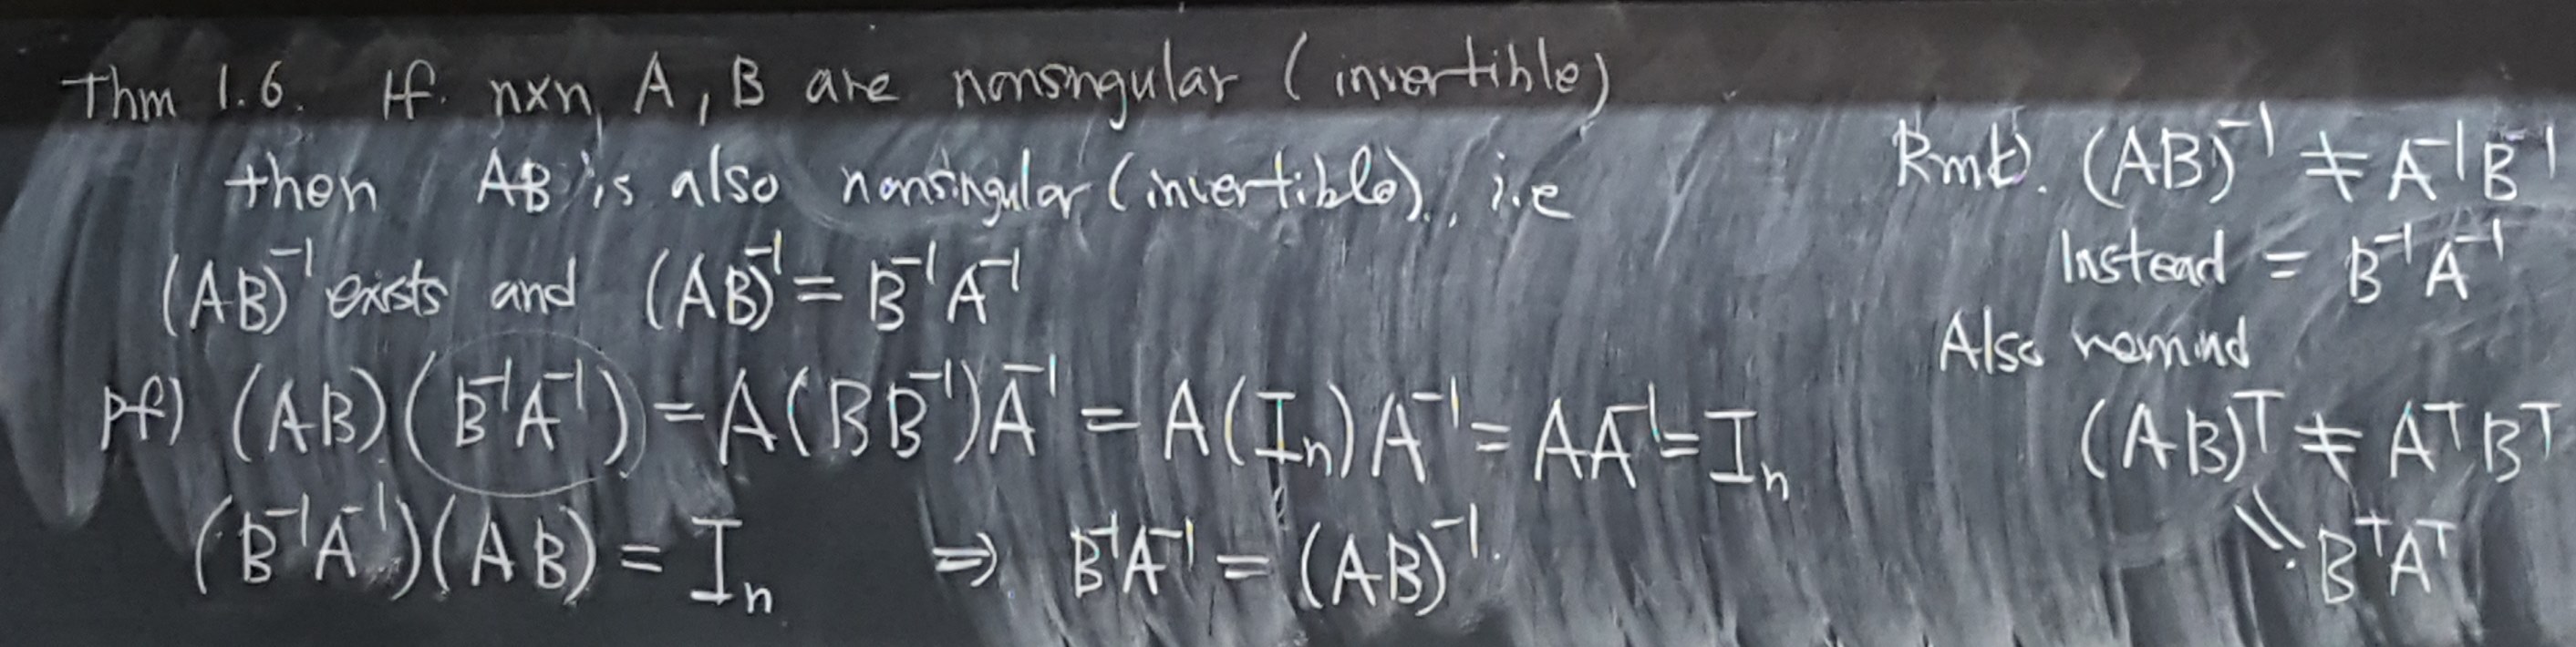 Thm 1.6. If n×n, A, B are nonsingular (invertible)
then AB is also nonsingular (invertible), i.e
(AB)⁻¹ exists and (AB)⁻¹ = B⁻¹A⁻¹
pf) (AB)(B⁻¹A⁻¹) = A(BB⁻¹)A⁻¹ = A(Iₙ)A⁻¹ = AA⁻¹ = Iₙ
(B⁻¹A⁻¹)(AB) = Iₙ ⇒ B⁻¹A⁻¹ = (AB)⁻¹.
Rmk). (AB)⁻¹ ≠ A⁻¹B⁻¹
Instead = B⁻¹A⁻¹
Also remind
(AB)ᵀ ≠ AᵀBᵀ
\\ BᵀAᵀ